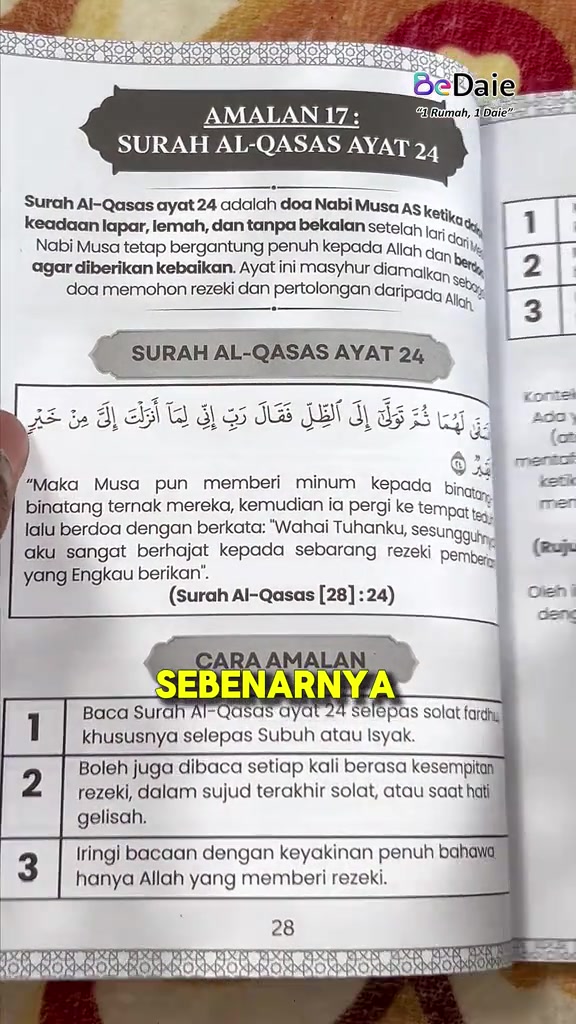 BeDaie
"1 Rumah, 1 Daie"
AMALAN 17 :
SURAH AL-QASAS AYAT 24
Surah Al-Qasas ayat 24 adalah doa Nabi Musa AS ketika
keadaan lapar, lemah, dan tanpa bekalan setelah lari dari
Nabi Musa tetap bergantung penuh kepada Allah dan
agar diberikan kebaikan. Ayat ini masyhur diamalkan
doa memohon rezeki dan pertolongan daripada Allah.
SURAH AL-QASAS AYAT 24
لَهُمَا ثُمَّ تَوَلَّىٰٓ إِلَى ٱلظِّلِّ فَقَالَ رَبِّ إِنِّى لِمَآ أَنزَلْتَ إِلَىَّ مِنْ خَيْرٍ
٢٤
"Maka Musa pun memberi minum kepada binatang-
binatang ternak mereka, kemudian ia pergi ke tempat
lalu berdoa dengan berkata: "Wahai Tuhanku,
aku sangat berhajat kepada sebarang rezeki
yang Engkau berikan".
(Surah Al-Qasas [28] : 24)
CARA AMALAN
SEBENARNYA
1 Baca Surah Al-Qasas ayat 24 selepas solat fardhu,
khususnya selepas Subuh atau Isyak.
2 Boleh juga dibaca setiap kali berasa kesempitan
rezeki, dalam sujud terakhir solat, atau saat hati
gelisah.
3 Iringi bacaan dengan keyakinan penuh bahawa
hanya Allah yang memberi rezeki.
28
1
2
3
Ada